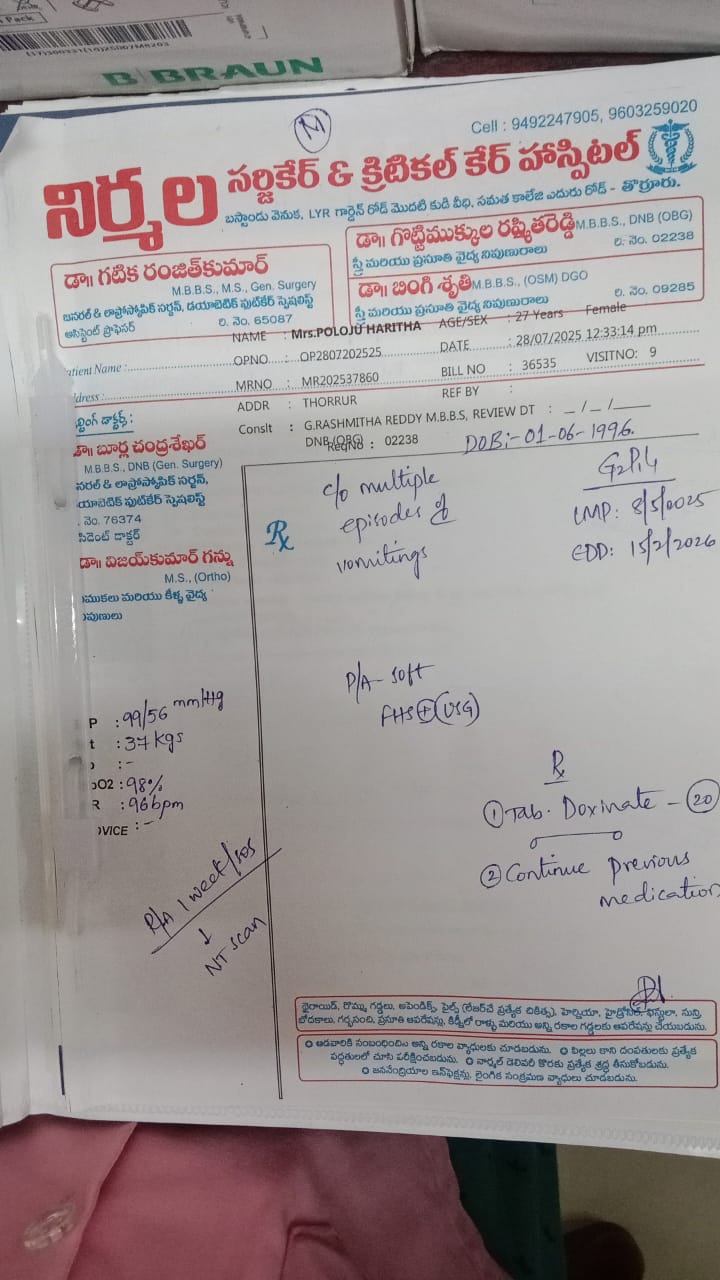 Pack
(17)300331(10)25D07M8203
B BRAUN
M
Cell : 9492247905, 9603259020
నిర్మల సర్జికేర్ & క్రిటికల్ కేర్ హాస్పిటల్
బస్టాండు వెనుక, LYR గార్డెన్ రోడ్ మొదటి కుడి వీధి, సమత కాలేజి ఎదురు రోడ్ - తొర్రూరు.
డా॥ గటిక రంజిత్‌కుమార్
M.B.B.S., M.S., Gen. Surgery
జనరల్ & లాప్రోస్కోపిక్ సర్జన్, డయాబెటిక్ ఫుట్‌కేర్ స్పెషలిస్ట్
అసిస్టెంట్ ప్రొఫెసర్ రి. నెం. 65087
డా॥ గొట్టిముక్కుల రష్మితరెడ్డి M.B.B.S., DNB (OBG)
స్త్రీ మరియు ప్రసూతి వైద్య నిపుణురాలు రి. నెం. 02238
డా॥ బింగి శృతి M.B.B.S., (OSM) DGO
స్త్రీ మరియు ప్రసూతి వైద్య నిపుణురాలు రి. నెం. 09285
NAME : Mrs.POLOJU HARITHA AGE/SEX : 27 Years Female
atient Name :
OPNO : OP2807202525 DATE : 28/07/2025 12:33:14 pm
MRNO : MR202537860 BILL NO : 36535 VISITNO: 9
ddress :
ADDR : THORRUR REF BY :
Conslt : G.RASHMITHA REDDY M.B.B.S, REVIEW DT : _/_/___
DNB (OBG)
RegNo : 02238
DOB:- 01-06-1996.
ల్టింగ్ డాక్టర్స్ :
డా॥ బూర్ల చంద్రశేఖర్
M.B.B.S., DNB (Gen. Surgery)
నరల్ & లాప్రోస్కోపిక్ సర్జన్,
యాబెటిక్ ఫుట్‌కేర్ స్పెషలిస్ట్
. నెం. 76374
సిడెంట్ డాక్టర్
డా॥ విజయ్‌కుమార్ గన్ను
M.S., (Ortho)
ముకలు మరియు కీళ్ళ వైద్య
పుణులు
Rx
c/o multiple
episodes of
vomitings
G2P1L1
LMP: 8/5/2025
EDD: 15/2/2026
P/A - soft
FHS + (USG)
P : 99/56 mm/Hg
t : 37 kgs
: -
pO2 : 98%
R : 96 bpm
DVICE : -
R/A 1 week/SOS
↓
NT scan
Rx
① Tab. Doxinate - 20
② Continue previous
medication
థైరాయిడ్, రొమ్ము గడ్డలు, అపెండిక్స్, పైల్స్ (లేజర్‌చే ప్రత్యేక చికిత్స), హెర్నియా, హైడ్రోసిల్, ఫిస్టులా, సున్తి
బోదకాలు, గర్భసంచి, ప్రసూతి ఆపరేషన్లు, కిడ్నీలో రాళ్ళు మరియు అన్ని రకాల గడ్డలకు ఆపరేషన్లు చేయబడును.
ఆడవారికి సంబంధించిన అన్ని రకాల వ్యాధులకు చూడబడును. పిల్లలు కాని దంపతులకు ప్రత్యేక
పద్ధతులలో చూసి పరీక్షించబడును. నార్మల్ డెలివరీ కొరకు ప్రత్యేక శ్రద్ధ తీసుకోబడును.
జననేంద్రియాల ఇన్‌ఫెక్షన్లు, లైంగిక సంక్రమణ వ్యాధులు చూడబడును.